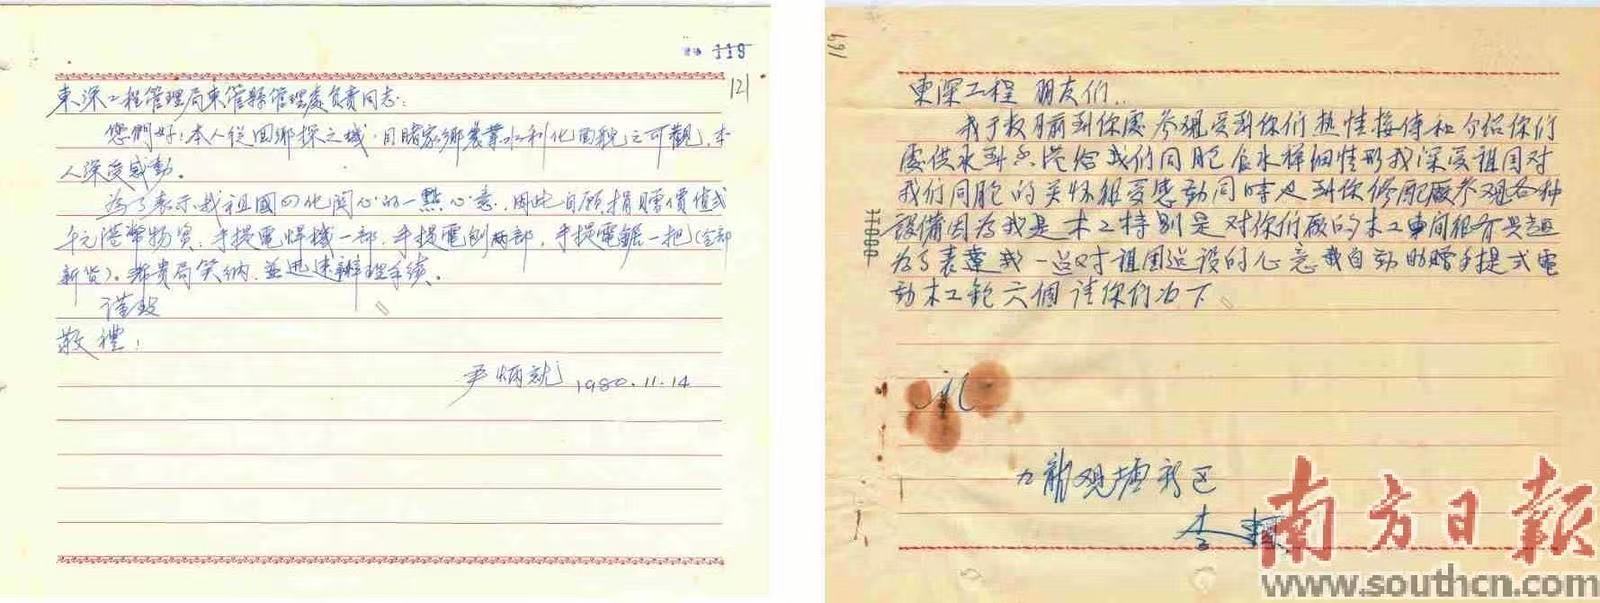 119
121
東深工程管理局東管縣管理處負責同志:
您們好!本人從回鄉探之城,目睹家鄉農業水利化面貌之可觀,本
人深受感動。
為了表示我祖國四化関心的一點心意,因此自願捐贈價值
千元港幣物資,手提電焊機一部,手提電刨兩部,手提電鋸一把(全部
新货)。希貴局笑納,並迅速辦理手续。
謹致
敬禮!
尹炳就 1980.11.14
169
東深工程 朋友们:
我于数月前到你處参观受到你们热情接待和介绍你们
處供水到香港给我们同胞食水样细情形我深受祖国对
我们同胞的关怀很受感動同時也到你修配廠参观各种
設備因为我是木工特别是对你们廠的木工車间很有兴趣
为了表達我一点对祖国建设的心意我自動助赠手提式電
動木工鉋六個請你们收下
礼
九龍观塘新区
李
南方日報
www.southcn.com